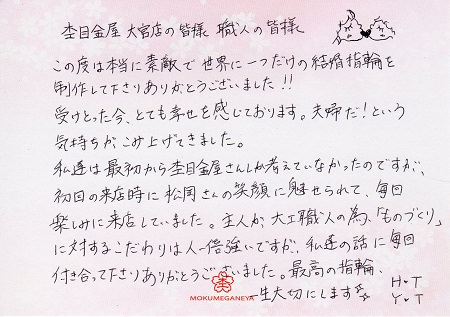 杢目金屋 大宮店の皆様 職人の皆様
この度は本当に素敵で世界に一つだけの結婚指輪を
制作して下さりありがとうございました!!
受けとった今、とても幸せを感じております。夫婦だ!という
気持ちが、こみ上げてきました。
私達は最初から杢目金屋さんしか考えていなかったのですが、
初回の来店時に松岡さんの笑顔に魅せられて、毎回
楽しみに来店していました。主人が、大工職人の為、「ものづくり」
に対するこだわりは人一倍強いですが、私達の話に毎回
付き合って下さりありがとうございました。最高の指輪、
一生大切にします
H・T
Y・T
MOKUMEGANEYA